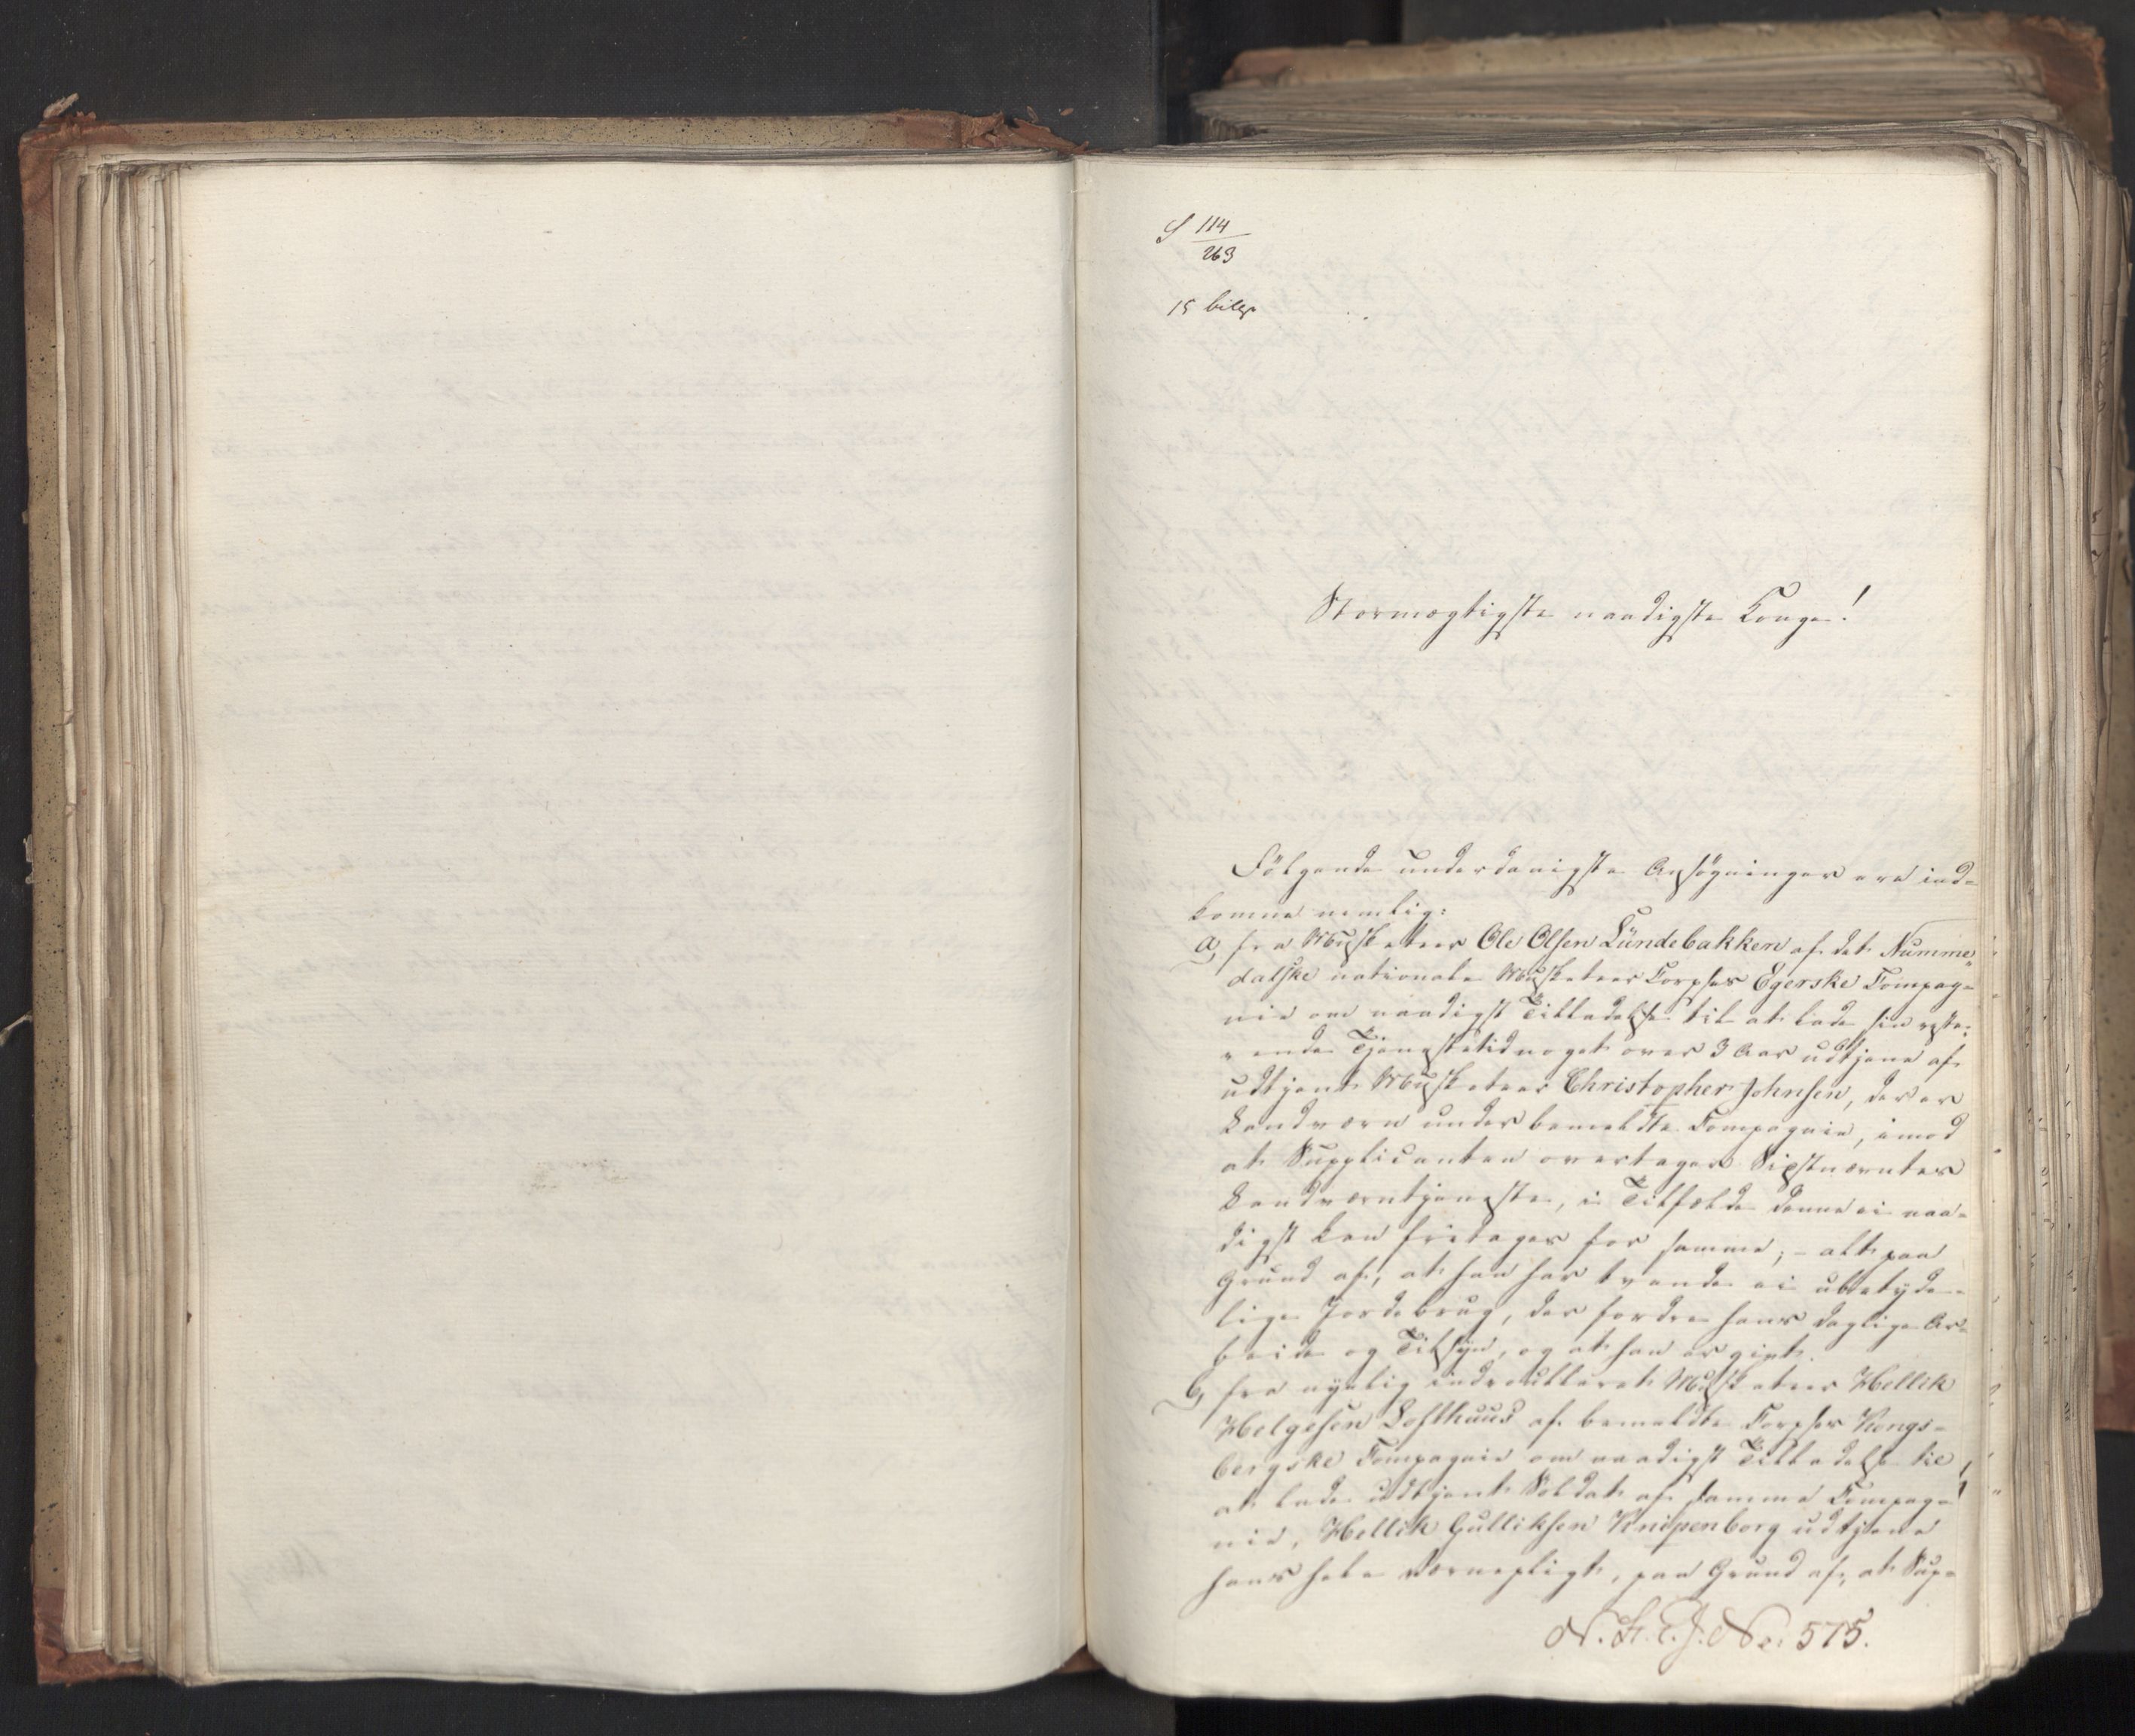 S 114
263
15 bilag
Stormægtigste naadigste Konge!
Følgende underdanigste Ansøgninger ere ind-
komne nemlig:
a, fra Musketeer Ole Olsen Lündebakken af det Numme-
dalske nationale Musketeer Corpses Egerske Compag-
nie om naadigst Tilladelse til at lade sin reste-
rende Tjenestetid noget over 3 Aar udtjene af
udtjent Musketeer Christopher Johnsen, der er
Landværn under bemeldte Compagnie, imod
at Supplicanten overtager Sidstnævntes
Landværntjeneste, i Tilfælde denne ei naa-
digst kan fritages for samme; - alt paa
Grund af, at han har tvende ei ubetyde-
lige Jordebrug, der fordre hans daglige Ar-
beide og Tilsyn, og at han er givt.
b, fra nyelig indroulleret Musketeer Hellik
Helgesen Lofthuus af bemeldte Corpses Kongs-
bergske Compagnie om naadigst Tilladelse til,
at lade udtjent Soldat af samme Compag-
nie, Hellik Gulliksen Knipenborg udtjene
hans hele Værnepligt, paa Grund af, at Sup-
No: 575.